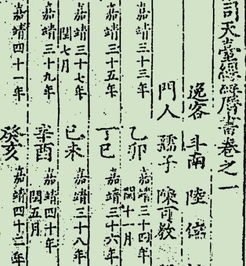 司天臺經曆書卷之一
逸客 斗南 陸
門人 孺子 陳可教
嘉靖三十三年 乙卯 嘉靖三十四年
閏十一月
嘉靖三十五年 丁巳 嘉靖三十六年
嘉靖三十七年 己未 嘉靖三十八年
閏七月
嘉靖三十九年 辛酉 嘉靖四十年
閏五月
嘉靖四十一年 癸亥 嘉靖四十二年